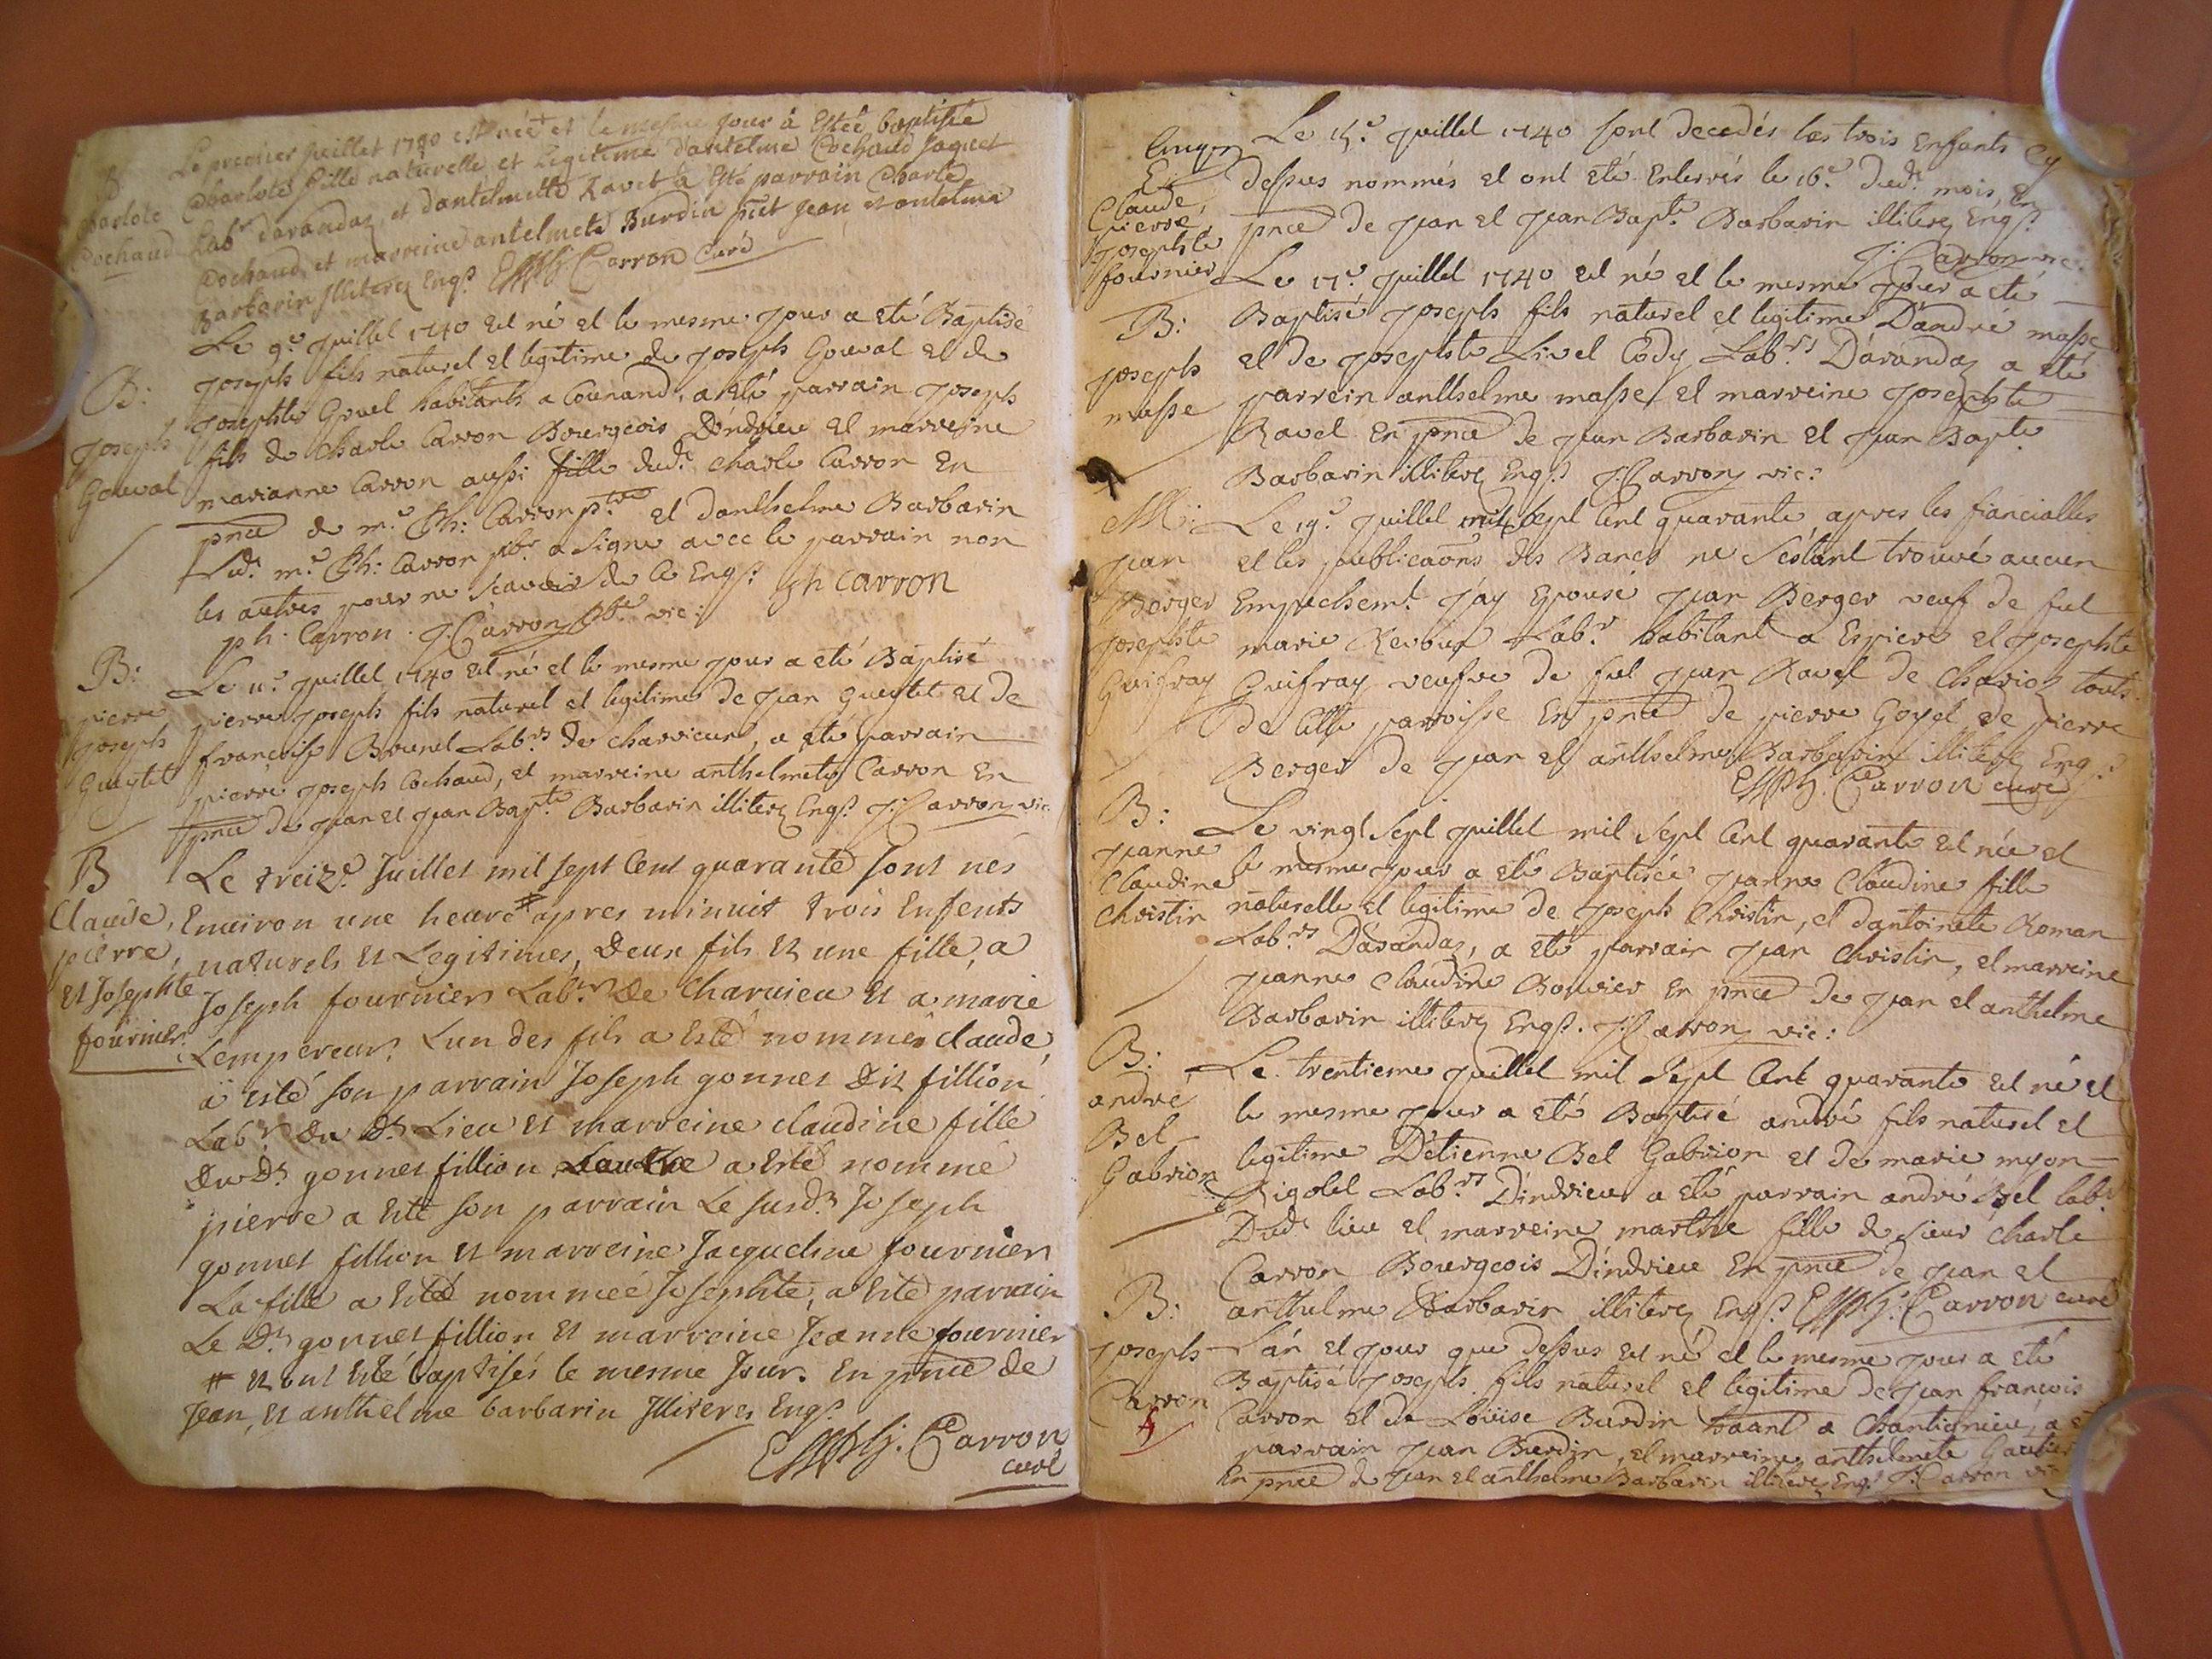 B Le premier Juillet 1740 est née et le mesme jour a Esteé baptisée
Charlote Charlote fille naturelle et Legitime dantelme Cochaud Jaquet
Cochaud Labr davandaz, et dantelmette Ravet a Esté parrain Charle
Cochaud et marreine antelmete Burdin pnt Jean et antelme
Barbarin Illiterez Enqs Carron Curé
Le 9e juillet 1740 est né et le mesme jour a eté Baptisé
B: joseph fils naturel et legitime de joseph Gouval et de
josephte Gruel habitants a Counand, a eté parrain joseph
joseph fils de Charle Carron Bourgeois D'indrieu et marreine
Gouval marianne Carron aussi fille dudt Charle Carron En
pnce de mre Ph: Carron ptre et danthelme Barbarin
Ledt mre Ph: Carron pbr a signé avec le parrain non
les autres pour ne scavoir de ce Enqs ph Carron
ph. Carron. J: Carron pbr vic:
B: Le 11e juillet 1740 est né et le mesme jour a eté Baptisé
pierre pierre joseph fils naturel et legitime de jean Gueytet et de
joseph francoise Brunel Labrs de charvieux, a eté parrain
Gueytet pierre joseph Cochaud, et marreine anthelmete Carron En
pnce de jean et jean Bapte Barbarin illiterez Enqs J: Carron vic
B Le treize Juillet mil sept Cent quarante sont nés
Claude, Environ une heure # apres minuit trois Enfents
pierre, naturels et Legitimes, Deux fils et une fille, a
et Josephte Joseph fournier Labr De Charvieu et a marie
fournier. Lempereur. Lun des fils a esté nommé claude,
a esté son parrain Joseph gonnet Dit fillion
Labr Du Dt Lieu et marreine claudine fille
Du Dt gonnet fillion Lautre a esté nommé
pierre a esté son parrain Le susdt Joseph
gonnet fillion et marreine Jacqueline fournier
La fille a esté nommée Josephte, a esté parrain
Le Dt gonnet fillion et marreine Jeanne fournier
# et ont esté baptisés le mesme Jour. En pnce de
Jean, et anthelme barbarin Illiteres Enqs
Carron
curé
Le 15e juillet 1740 sont decedés les trois Enfants cy
Claude dessus nommés et ont eté Enterrés le 16e dudt mois, En
pierre, pnce de jean et jean Bapte Barbarin illiterez Enqs
josephte J: Carron vic:
fournier Le 17e juillet 1740 est né et le mesme jour a eté
B: Baptisé joseph fils naturel et legitime D'andré masse
joseph et de josephte Livet Cody Labrs D'avandaz a eté
masse parrein anthelme masse et marreine josephte
Ravet En pnce de jean Barbarin et jean Bapte
Barbarin illiterez Enqs J: Carron vic:
M: Le 19e juillet mil sept Cent quarante, apres les fiancialles
jean et les publicaons des Bancs ne s'estant trouvé aucun
Berger Empechemt j'ay Epousé jean Berger veuf de fut
josephte marie Labr habitant a Espiere et josephte
Guifray Guifray veufve de fut jean Ravet de Chavioz touts
de cette parroisse En pnce de pierre Goyet, de pierre
Berger de jean et anthelme Barbarin illiterez Enqs
Carron curé
B: Le vingt sept juillet mil sept Cent quarante est née et
jeanne le mesme jour a eté Baptisée jeanne Claudine fille
Claudine naturelle et legitime de joseph Christin, et dantoinete Roman
Christin Labrs D'avandaz, a eté parrain jean Christin, et marreine
jeanne Claudine Bouvier En pnce de jean et anthelme
Barbarin illiterez Enqs. J: Carron vic:
B: Le trentieme juillet mil sept Cent quarante est né et
andré le mesme jour a eté Baptisé andré fils naturel et
Bel legitime D'etienne Bel Gabrion et de marie myon
Gabrion Rigolet Labrs D'indrieu a eté parrain andré Bel labr
Dudt lieu et marreine marthe fille de sieur Charle
Carron Bourgeois D'indrieu En pnce de jean et
anthelme Barbarin illiterez Enqs Carron curé
B: L'an et jour que dessus est né et le mesme jour a eté
joseph Baptisé joseph fils naturel et legitime de jean francois
Carron Carron et de Louise Burdin haant a Chantignieu, a eté
parrain jean Burdin, et marreine anthelmete Gautier
En pnce de jean et anthelme Barbarin illiterez Enqs J: Carron vic